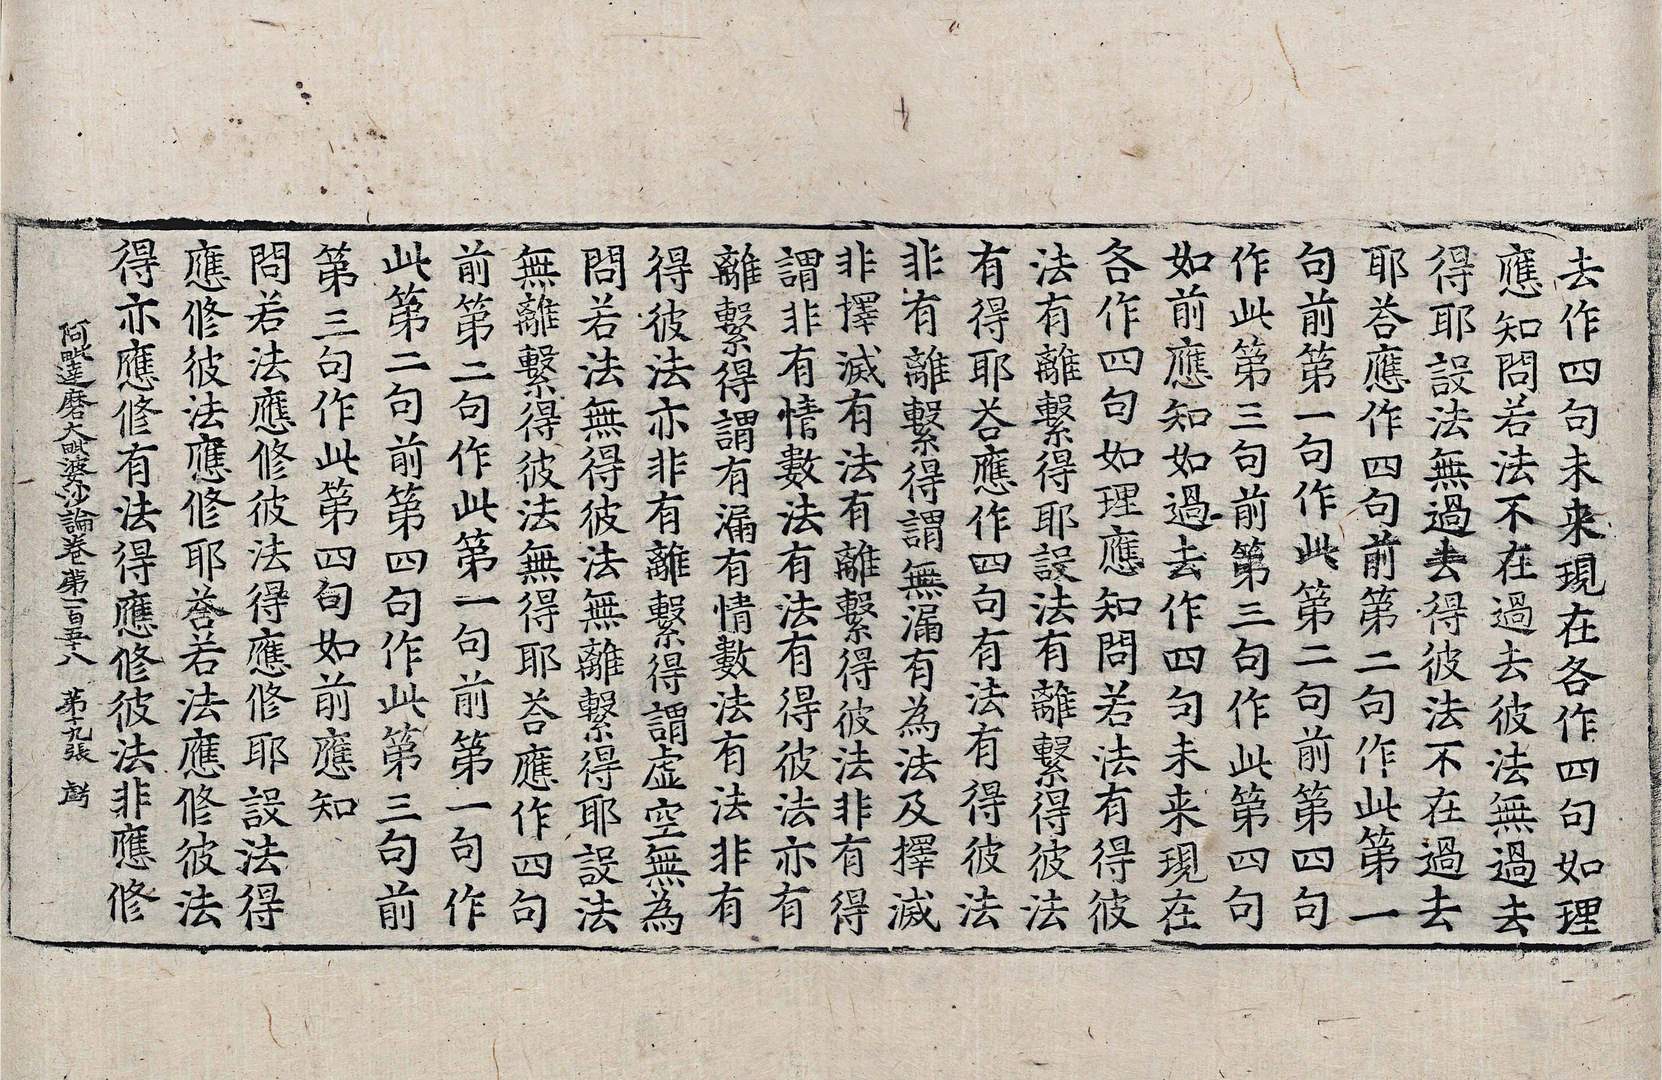 去作四句未来現在各作四句如理
應知問若法不在過去彼法無過去
得耶設法無過去得彼法不在過去
耶荅應作四句前第二句作此第一
句前第一句作此第二句前第四句
作此第三句前第三句作此第四句
如前應知如過去作四句未来現在
各作四句如理應知問若法有得彼
法有離繫得耶設法有離繫得彼法
有得耶荅應作四句有法有得彼法
非有離繫得謂無漏有為法及擇滅
非擇滅有法有離繫得彼法非有得
謂非有情數法有法有得彼法亦有
離繫得謂有漏有情數法有法非有
得彼法亦非有離繫得謂虛空無為
問若法無得彼法無離繫得耶設法
無離繫得彼法無得耶荅應作四句
前第二句作此第一句前第一句作
此第二句前第四句作此第三句前
第三句作此第四句如前應知
問若法應修彼法得應修耶設法得
應修彼法應修耶荅若法應修彼法
得亦應修有法得應修彼法非應修
阿毗達磨大毗婆沙論卷第一百五十八 第十九張